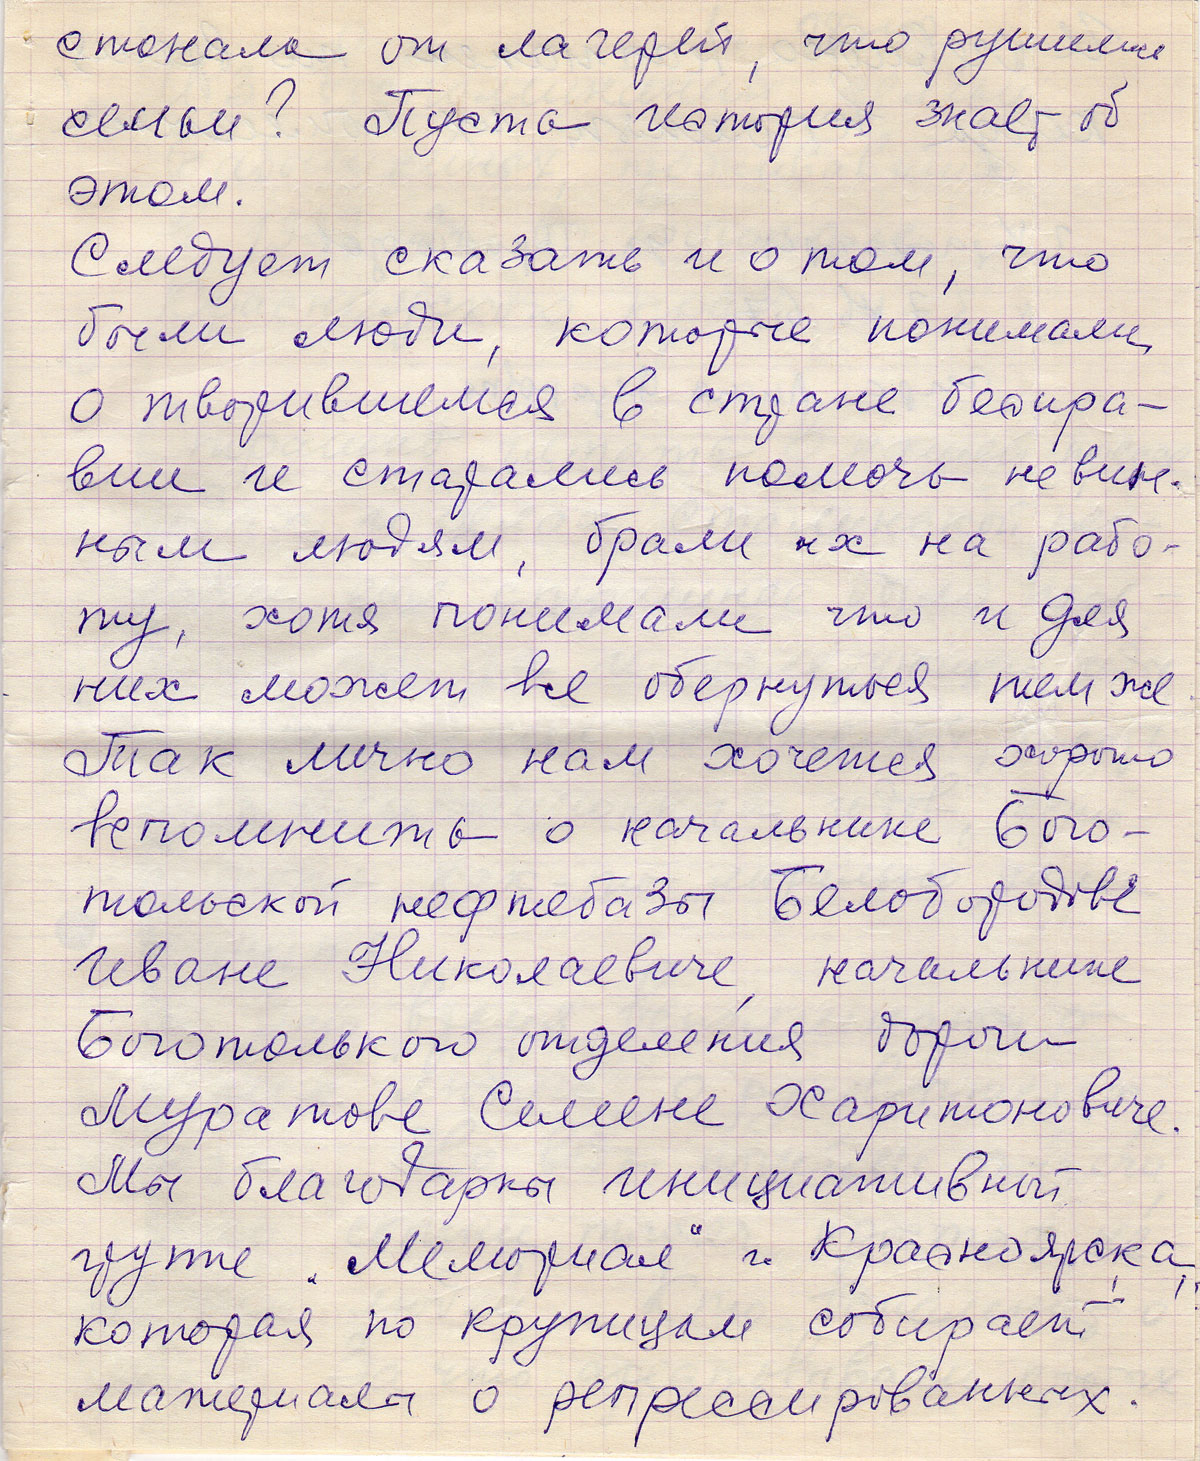 стонала от лагерей, что рушились
семьи? Пусть история знает об
этом.
Следует сказать и о том, что
были люди, которые понимали,
о творившемся в стране беспра-
вии и старались помочь невин-
ным людям, брали их на рабо-
ту, хотя понимали что и для
них может все обернуться тем же
Так лично нам хочется хорошо
вспомнить о начальнике Бого-
тольской нефтебазы Белобородове
Иване Николаевиче, начальнике
Боготолького отделения дороги
Муратове Семене Харитоновиче.
Мы благодарны инициативной
группе „Мемориал“ г. Красноярска,
которая по крупицам собирает
материалы о репрессированных.